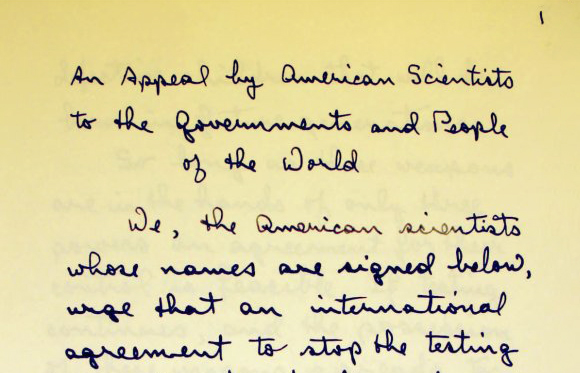 1
An Appeal by American Scientists
to the Governments and People
of the World
We, the American scientists
whose names are signed below,
urge that an international
agreement to stop the testing